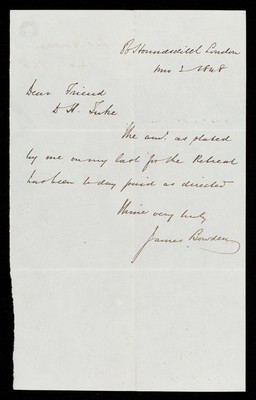 Houndsditch London
mo 2 1848
Dear Friend
D H. Tuke
The amt. as stated
by me in my last for the Retreat
has been to day paid as directed
thine very truly
James Bowden